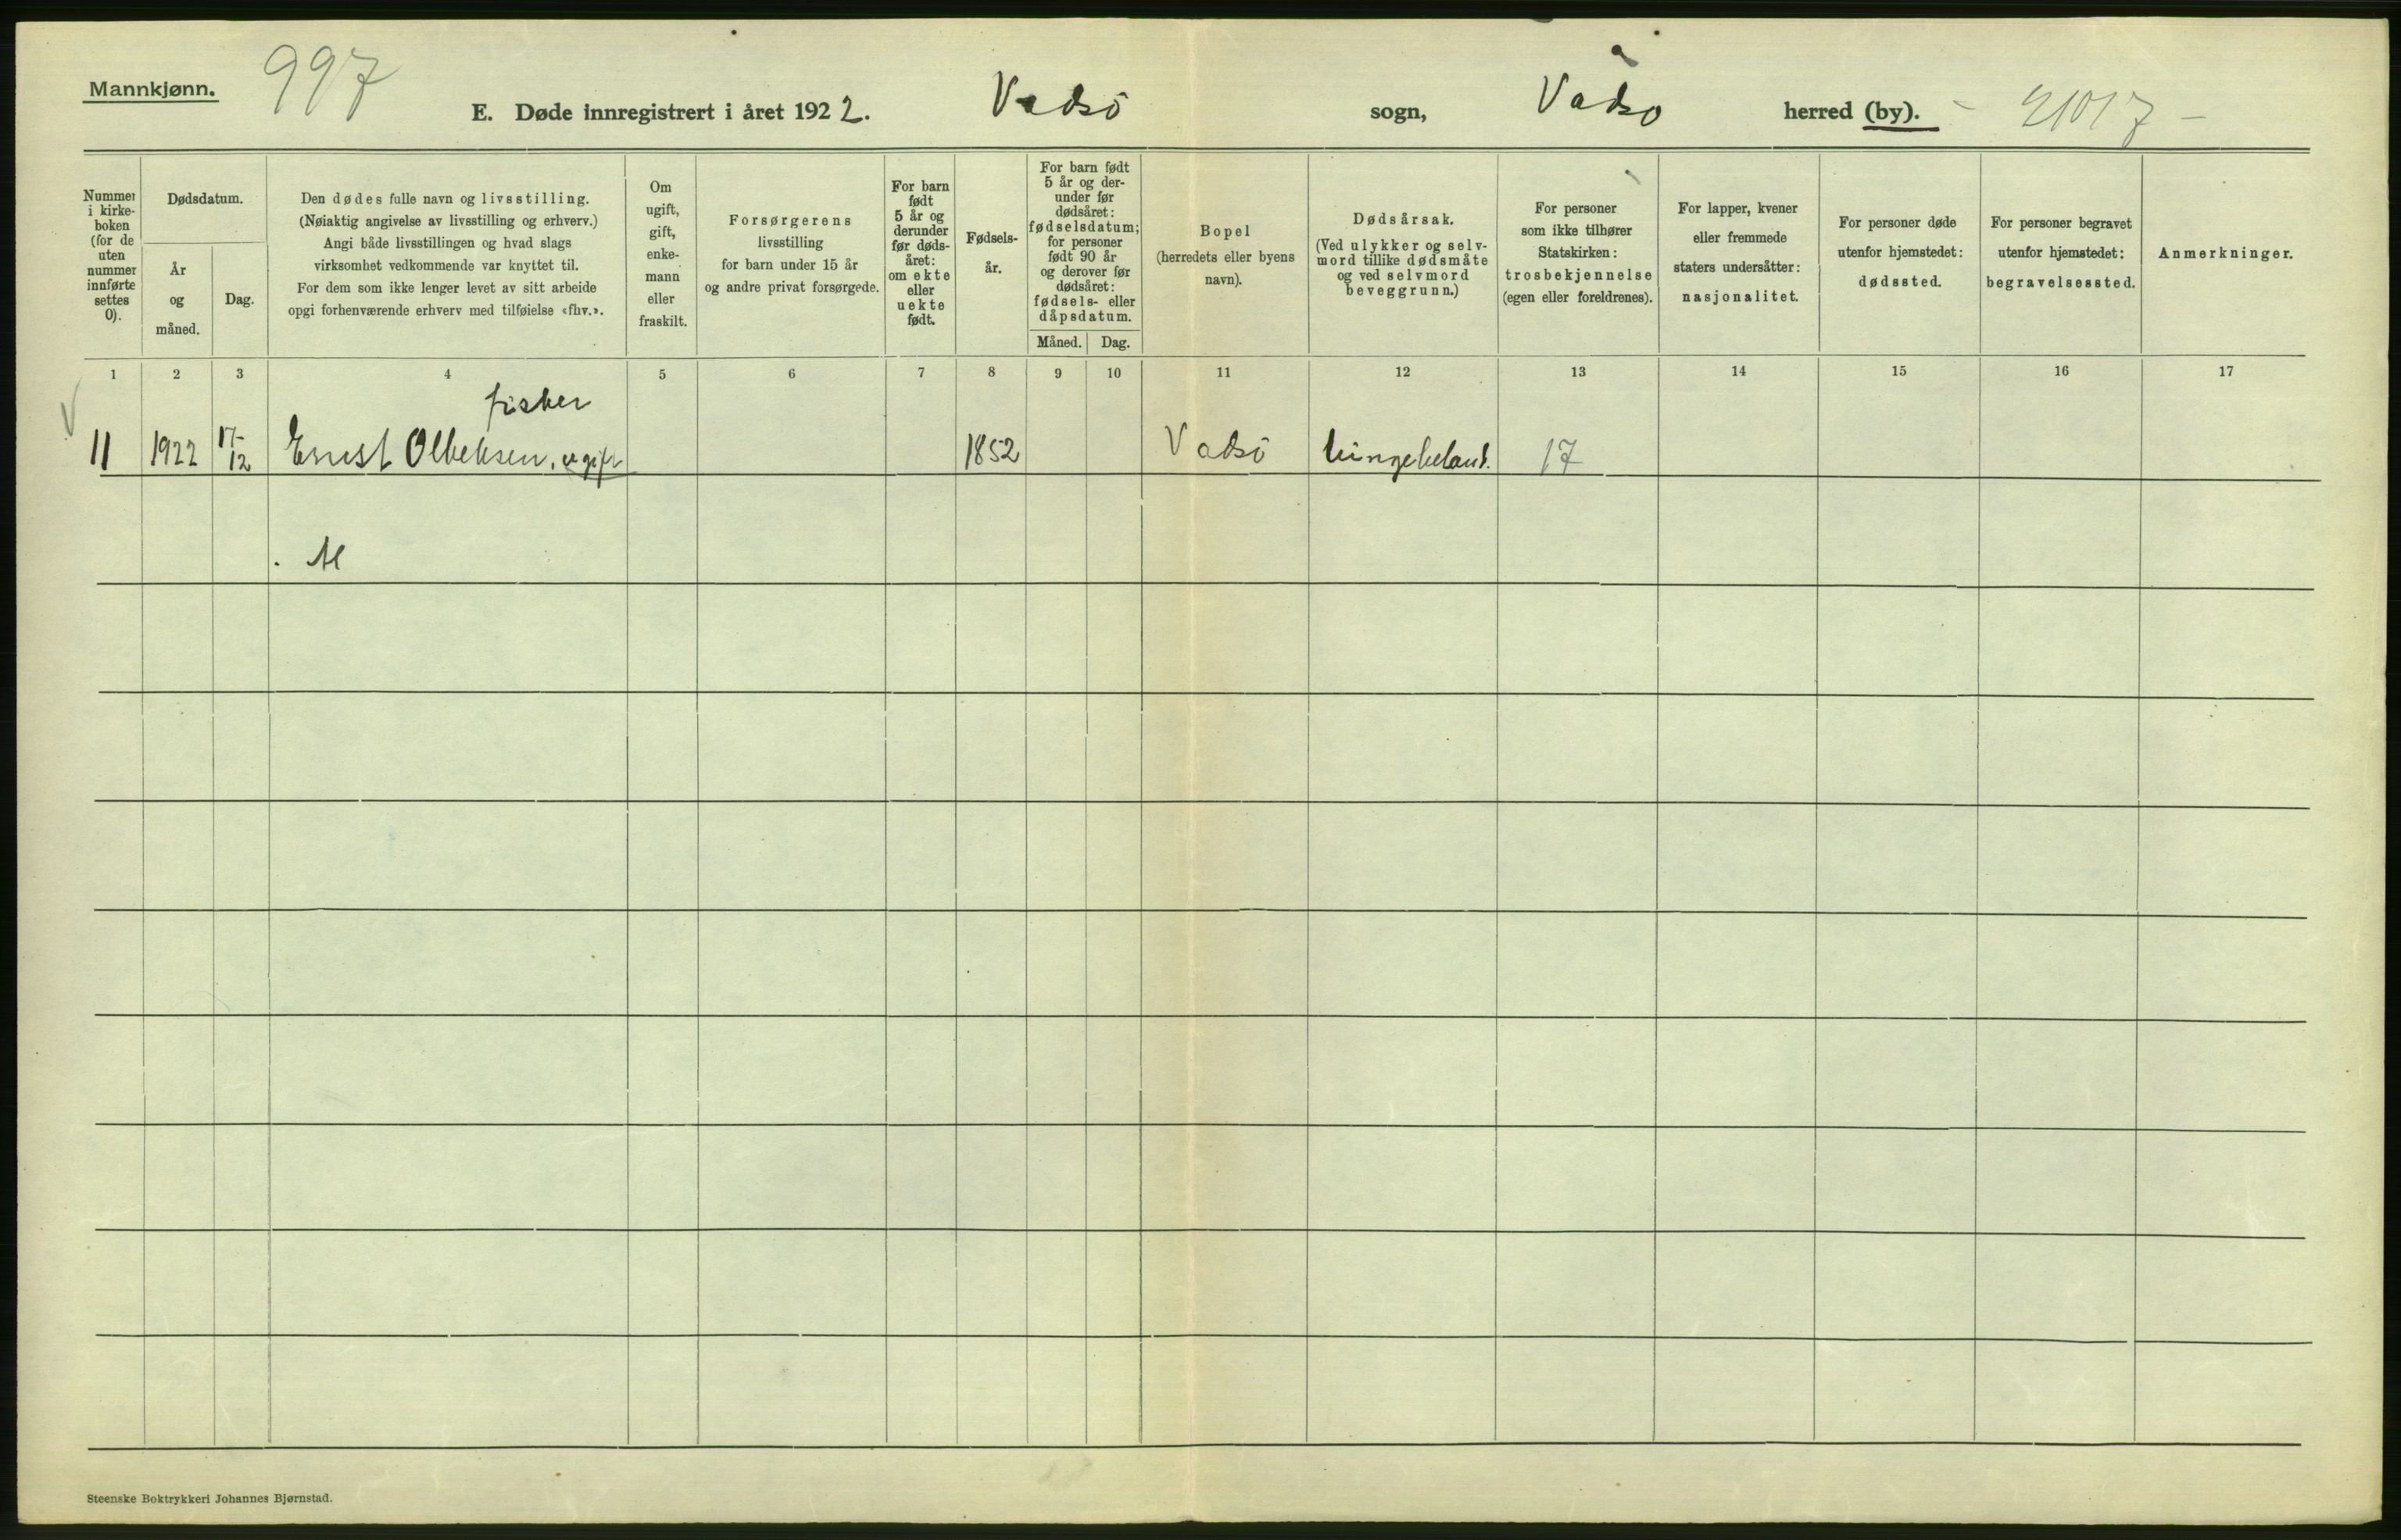 Mannkjønn.
997
E. Døde innregistrert i året 1922. Vadsö sogn, Vadsø herred (by).
Nummer i kirke-boken (for de uten nummer innførte settes 0).
Dødsdatum.
År og måned.
Dag.
Den dødes fulle navn og livsstilling.
(Nøiaktig angivelse av livsstilling og erhverv.)
Angi både livsstillingen og hvad slags
virksomhet vedkommende var knyttet til.
For dem som ikke lenger levet av sitt arbeide
opgi forhenværende erhverv med tilføielse «fhv.».
Om ugift, gift, enke-mann eller fraskilt.
Forsørgerens
livsstilling
for barn under 15 år
og andre privat forsørgede.
For barn født 5 år og derunder før døds-året: om ekte eller uekte født.
Fødsels-år.
For barn født 5 år og der-under før dødsåret: fødselsdatum; for personer født 90 år og derover før dødsåret: fødsels- eller dåpsdatum.
Måned. Dag.
Bopel
(herredets eller byens
navn).
Dødsårsak.
(Ved ulykker og selv-
mord tillike dødsmåte
og ved selvmord
beveggrunn.)
For personer
som ikke tilhører
Statskirken:
trosbekjennelse
(egen eller foreldrenes).
For lapper, kvener
eller fremmede
staters undersåtter:
nasjonalitet.
For personer døde
utenfor hjemstedet:
dødssted.
For personer begravet
utenfor hjemstedet:
begravelsessted.
Anmerkninger.
1 2 3 4 5 6 7 8 9 10 11 12 13 14 15 16 17
fisker
11 1922 17/12 Ernst ugift 1852 Vadsö 17
Steenske Boktrykkeri Johannes Bjørnstad.